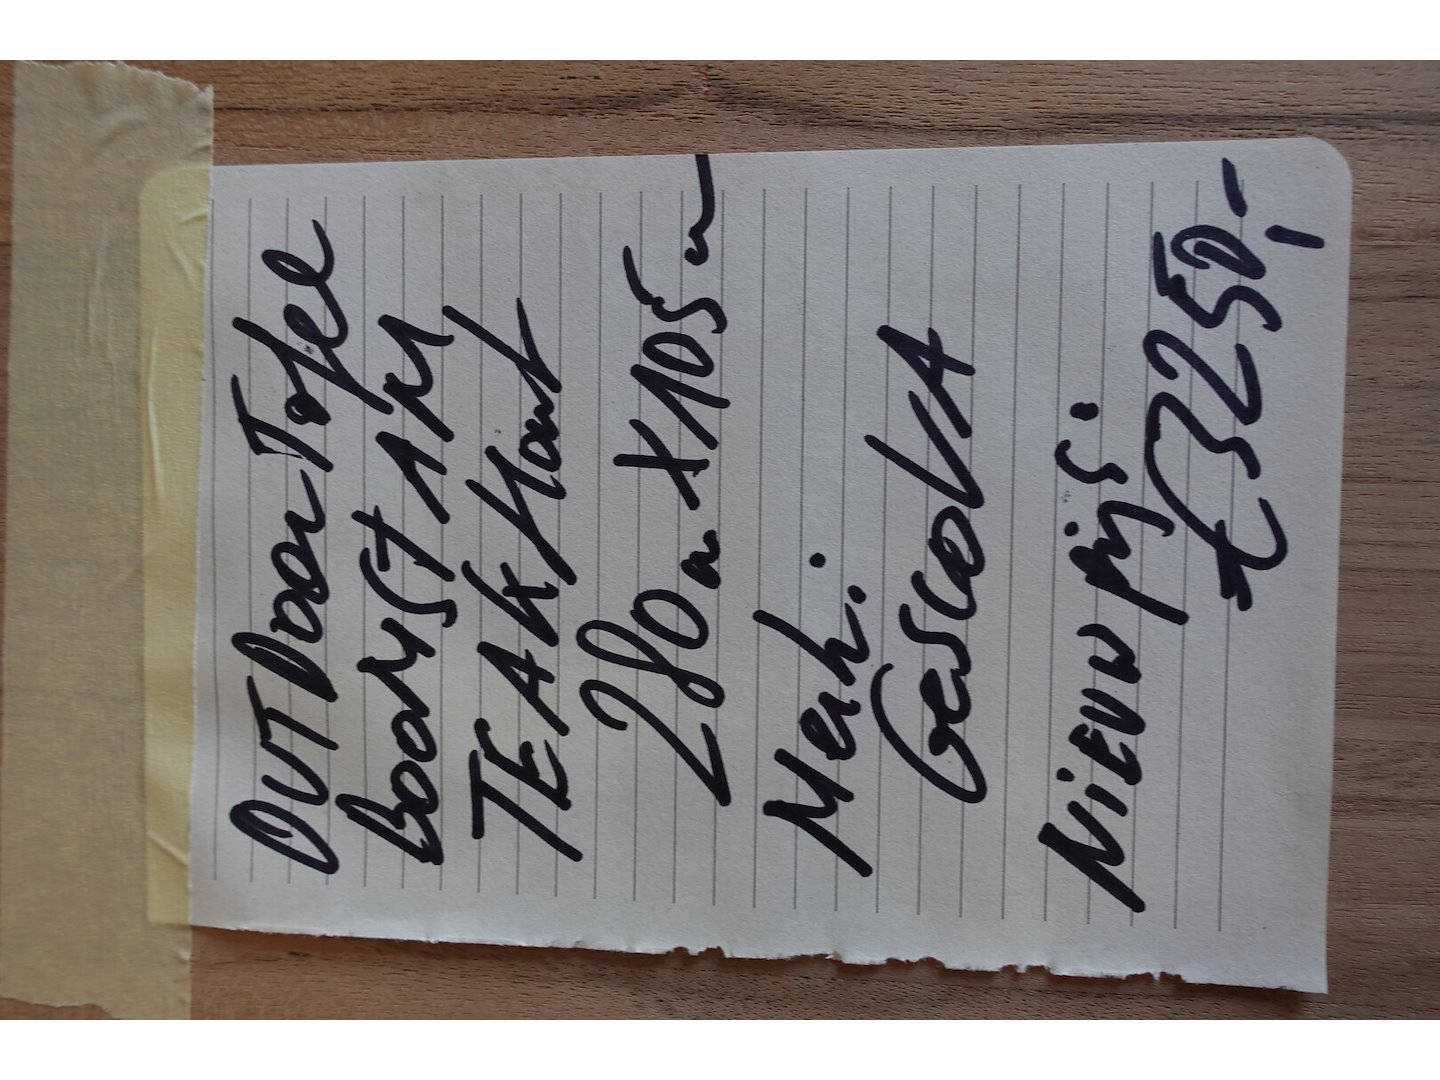 OUTDOOR Tafel
BOOMSTAM
TEAKHout
280 cm X 105 cm
Merk.
GESCOVA
NIEUW PRIJS.
€3250,-